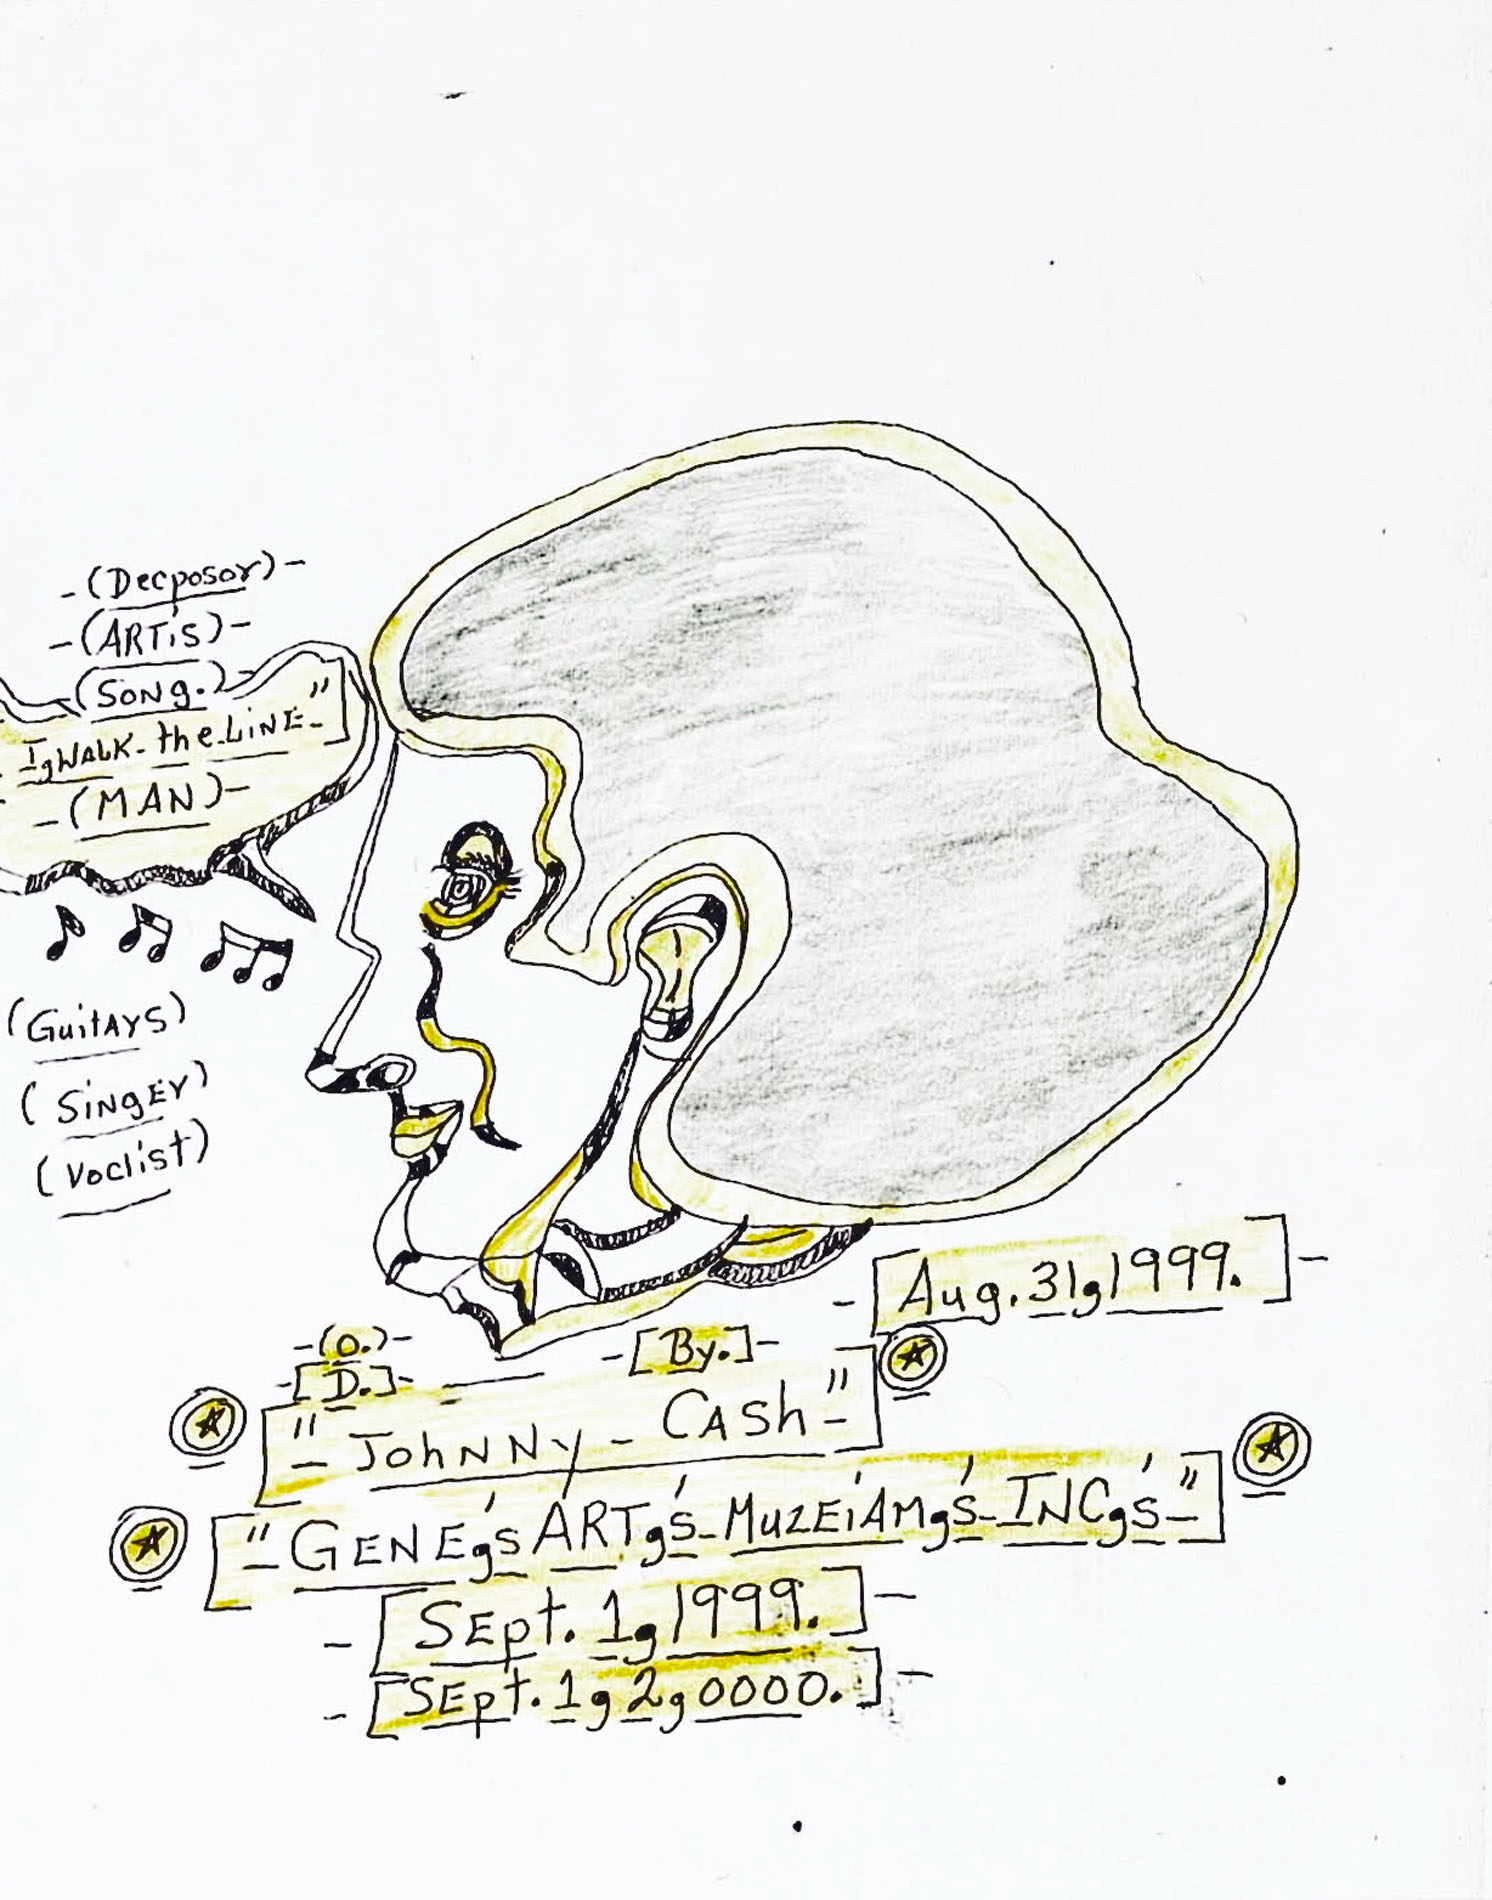 -(Decposor)-
-(ARTiS)-
-(SONg.)-
IgWALK-the-LiNE-"
-(MAN)-
(GuitArS)
(SiNgEr)
(Voclist)
-[Aug.31g1999.]-
-(O.)-
-[D.]- -[By.]-
["-JohNNy-CASh-"]
["-GENEg's ARTg's-MuZEiAMg's-INCg's-"]
-[SEpt.1g1999.]-
-[SEpt.1g2g0000.]-